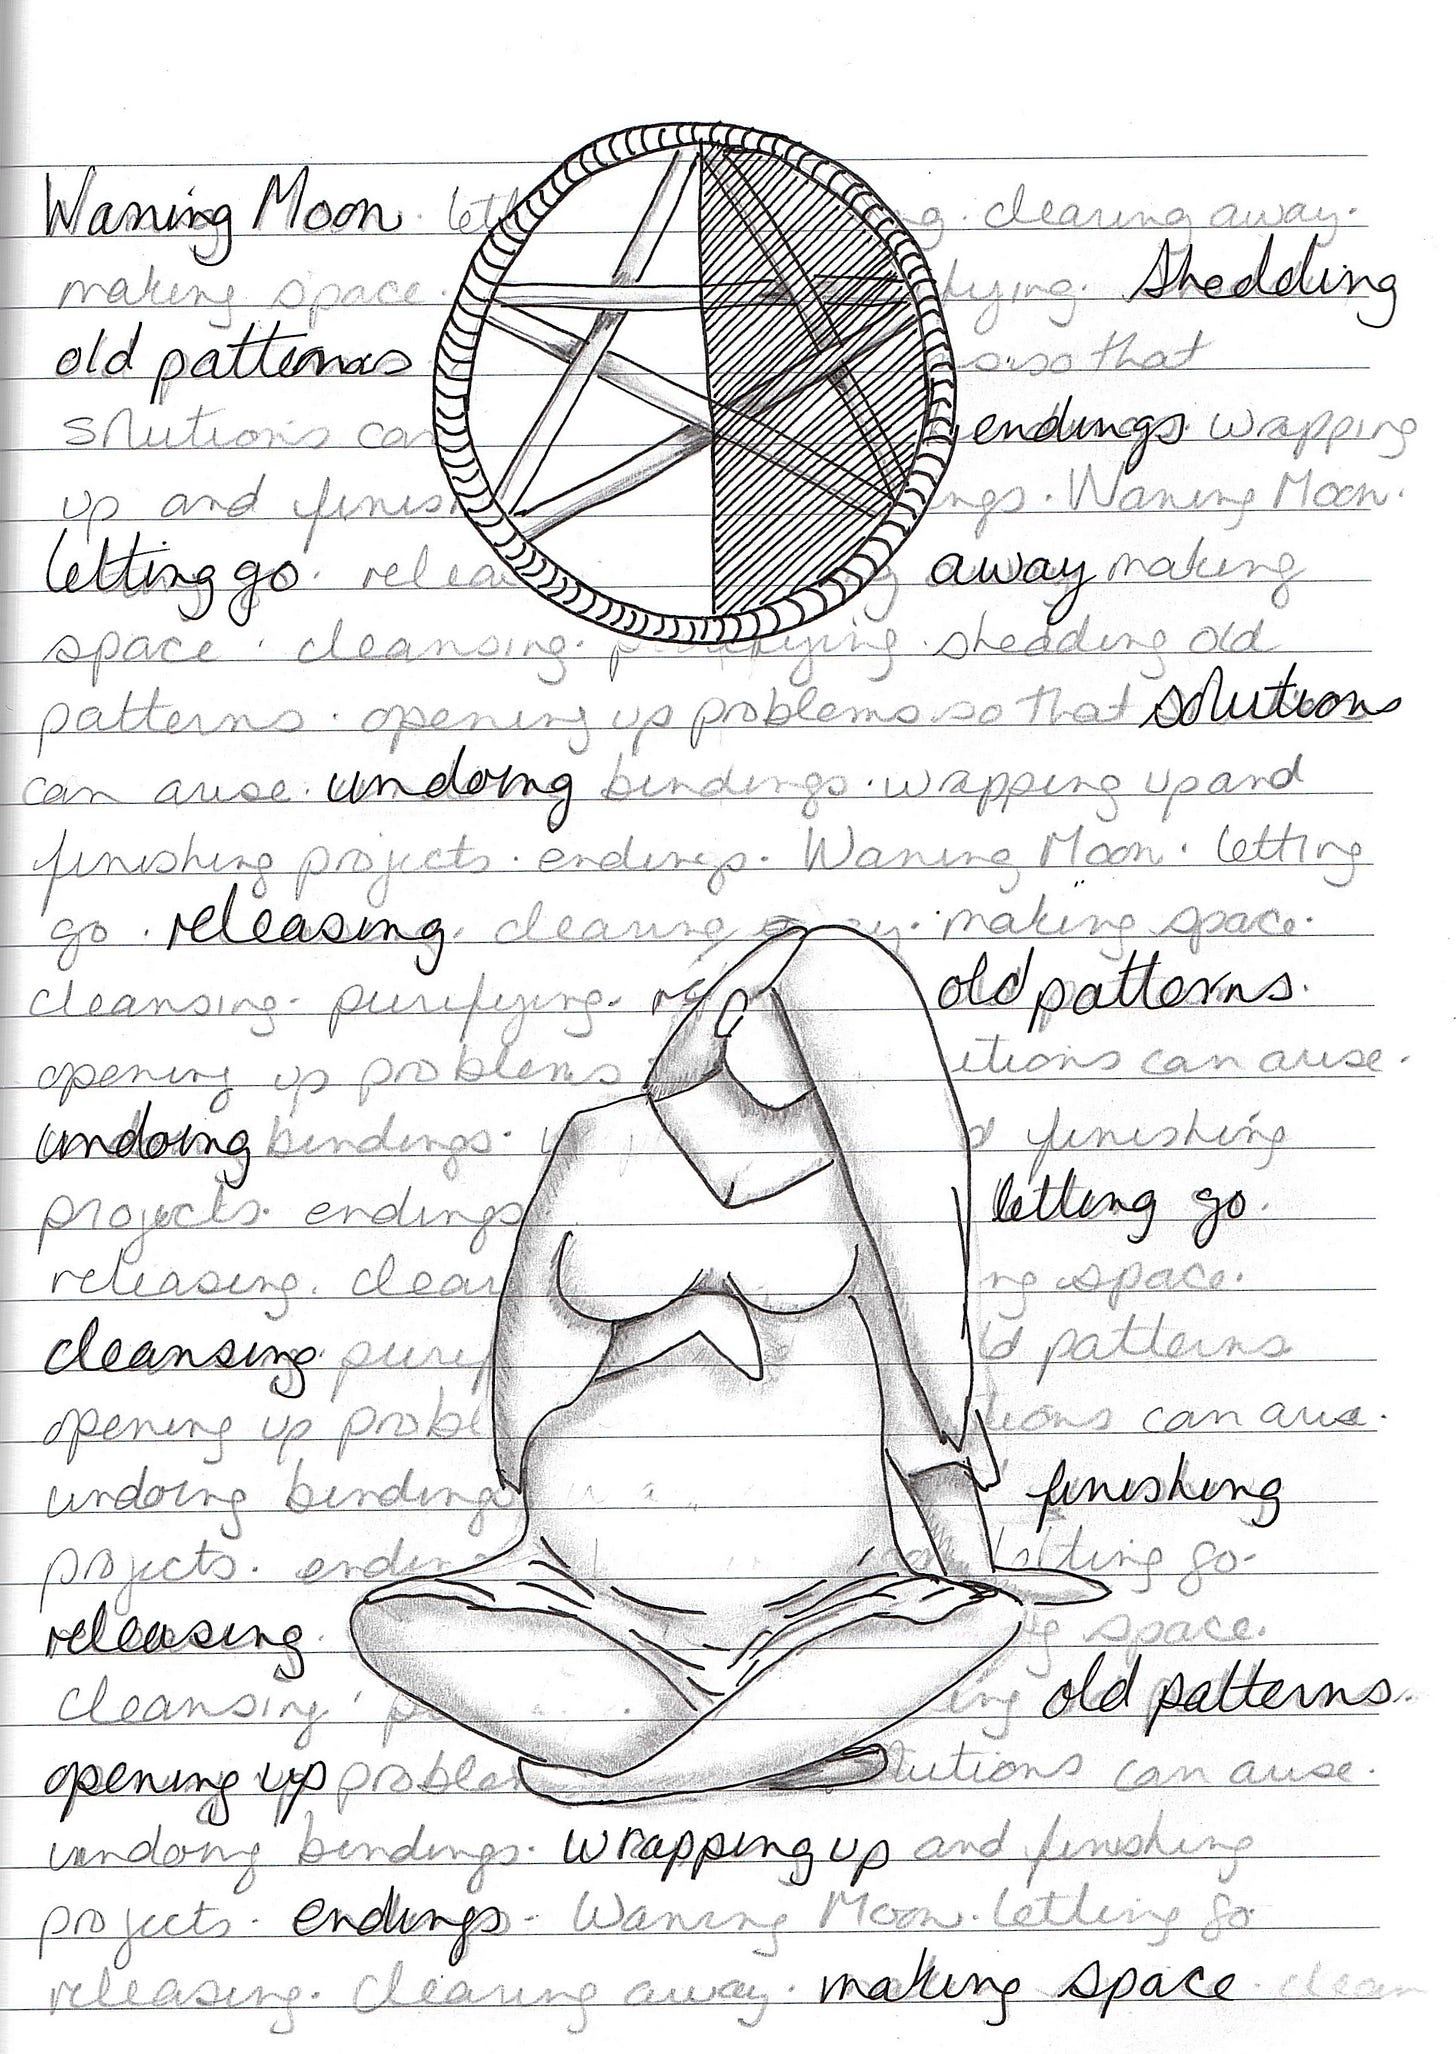 Waning Moon. clearing away.
making space. Shedding
old patterns so that
solutions can endings wrapping
up and Waning Moon.
letting go. away making
space. cleansing. purifying. shedding old
patterns. opening up problems so that solutions
can arise. undoing bindings. wrapping up and
finishing projects. endings. Waning Moon. letting
go. releasing. clearing away. making space.
cleansing. purifying. old patterns.
opening up problems can arise.
undoing bindings. finishing
projects. endings letting go.
releasing. space.
cleansing. patterns
opening up can arise.
undoing bindings finishing
projects. letting go.
releasing. space.
cleansing. old patterns.
opening up can arise.
undoing bindings. wrapping up and finishing
projects. endings. Waning Moon. letting go
releasing. clearing away. making space. clean